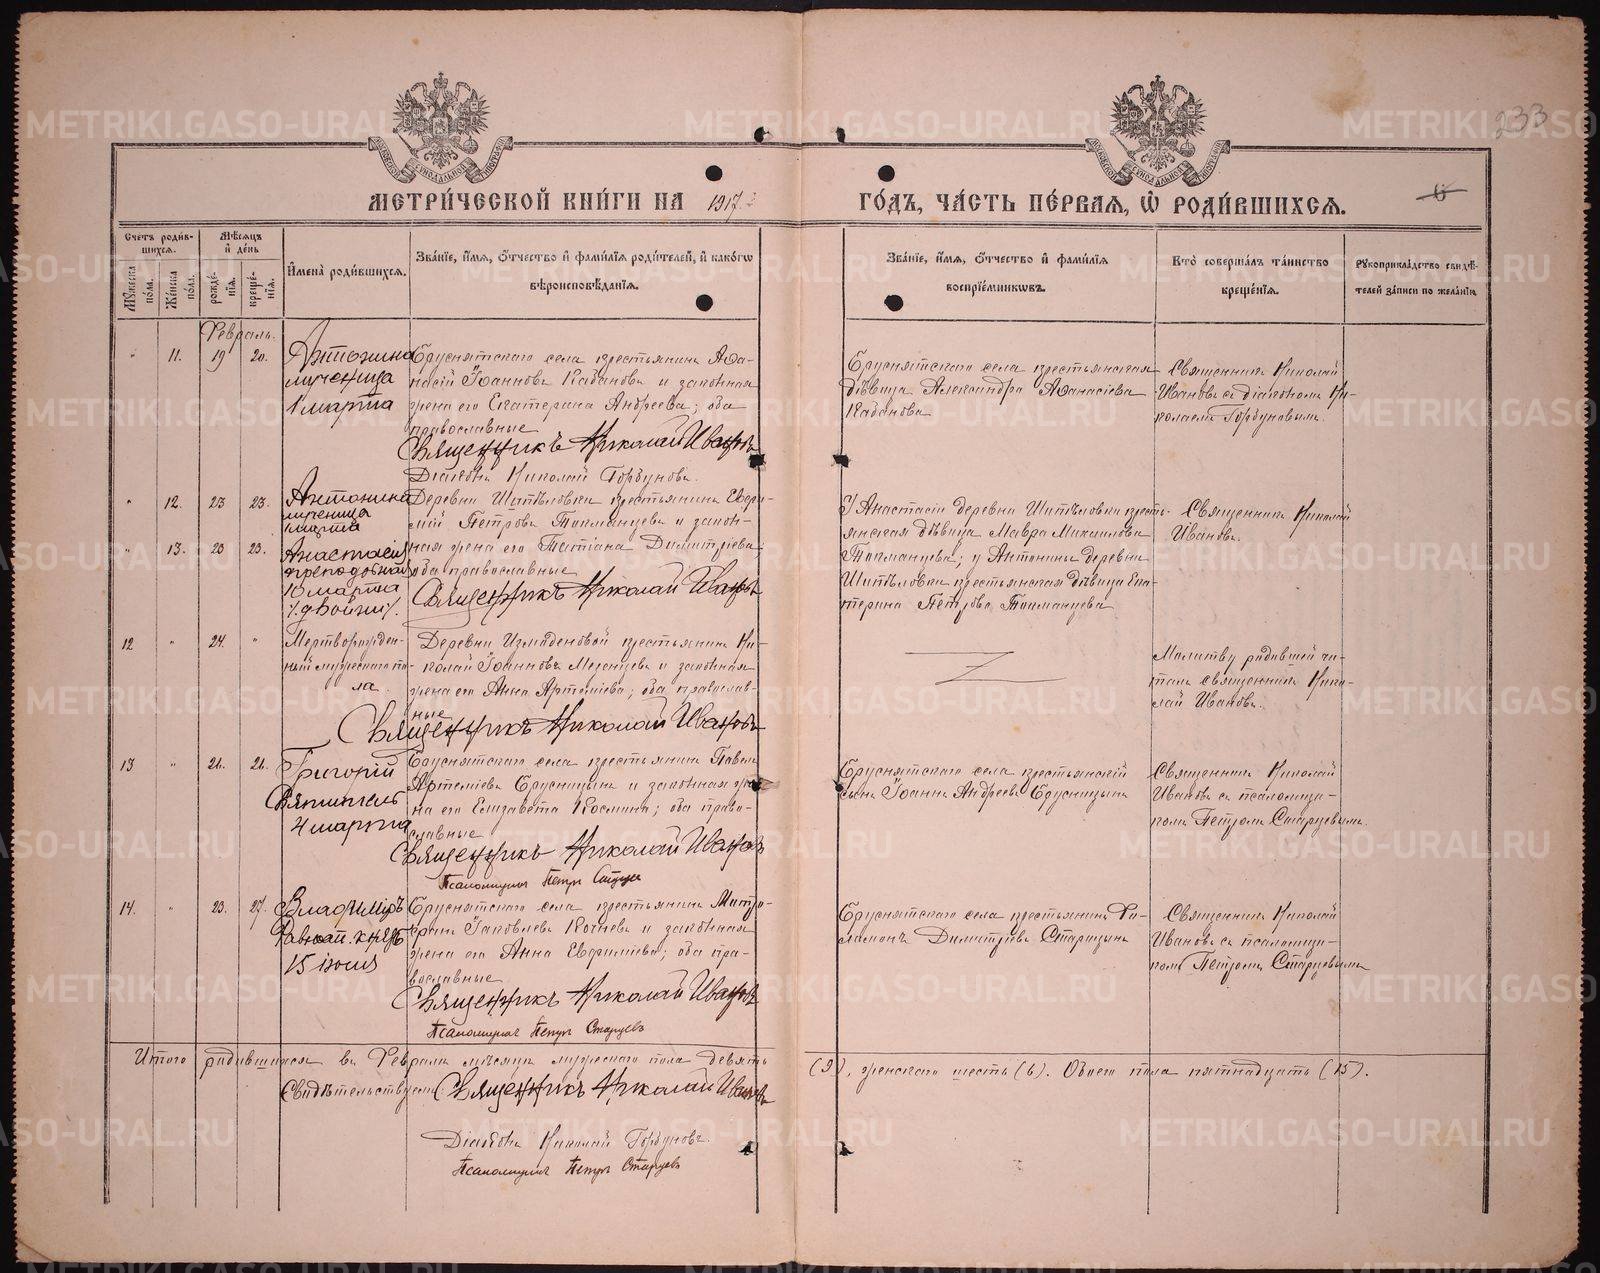 233
МЕТРИ́ЧЕСКОЙ КНИ́ГИ НА 1917
ГО́ДЪ, ЧА́СТЬ ПЕ́РВАЯ, Ѡ РОДИ́ВШИХСЯ.
6
Счетъ родив-
шихся.
Мужеска пола.
Женска пола.
Мѣсяцъ и день
рожденія.
крещенія.
Имена родившихся.
Званіе, имя, отчество и фамилія родителей, и какогѡ
вѣроисповѣданія.
Званіе, имя, отчество и фамилія
воспріемниковъ.
Кто совершалъ таинство
крещенія.
Рукоприкладство свидѣ-
телей записи по желанію.
Февраль.
" 11. 19 20.
Антонина
мученица
1 марта
Бруснятскаго села крестьянинъ Аѳа-
насій Іоанновъ Кабановъ и законная
жена его Екатерина Андреева; оба
православные
Священникъ Николай Ивановъ
Діаконъ Николай Горбуновъ.
Бруснятскаго села крестьянская
дѣвица Александра Аѳанасіева
Кабанова
Священникъ Николай
Ивановъ съ діакономъ Ни-
колаемъ Горбуновымъ.
" 12. 23 23.
Антонина
мученица
1 марта
" 13. 23 23.
Анастасія
преподобная
10 марта
/:двойни:/.
Деревни Шипѣловки крестьянинъ Евѳи-
мій Петровъ Токманцевъ и закон-
ная жена его Татіана Димитріева;
оба православные
Священникъ Николай Ивановъ
У Анастасіи деревни Шипѣловки кресть-
янская дѣвица Мавра Михаилова
Токманцева; у Антонины деревни
Шипѣловки крестьянская дѣвица Ека-
терина Петрова Токманцева
Священникъ Николай
Ивановъ.
12 " 24. "
Мертворожден-
ный мужескаго по-
ла.
Деревни Измоденовой крестьянинъ Ни-
колай Іоанновъ Мезенцевъ и законная
жена его Анна Артеміева; оба православ-
ные
Священникъ Николай Ивановъ
Молитву родившей чи-
талъ священникъ Нико-
лай Ивановъ.
13 "
Григорій
Святитель
4 марта
Бруснятскаго села крестьянинъ Павелъ
Артеміевъ Брусницынъ и законная же-
на его Елизавета Космина; оба право-
славные
Священникъ Николай Ивановъ
Псаломщикъ Петръ Старцевъ
Бруснятскаго села крестьянскій
сынъ Іоаннъ Андреевъ Брусницынъ
Священникъ Николай
Ивановъ съ псаломщи-
комъ Петромъ Старцевымъ.
14. " 23. 27.
Владиміръ
Равноап. князь
15 іюля
Бруснятскаго села крестьянинъ Митро-
фанъ Іаковлевъ Кочневъ и законная
жена его Анна Евѳиміева; оба пра-
вославные
Священникъ Николай Ивановъ
Псаломщикъ Петръ Старцевъ
Бруснятскаго села крестьянинъ Фи-
лимонъ Димитріевъ Старицынъ
Священникъ Николай
Ивановъ съ псаломщи-
комъ Петромъ Старцевымъ
Итого родившихся въ Февралѣ мѣсяцѣ мужескаго пола девять
(9), женскаго шесть (6). Обоего пола пятнадцать (15).
Свидѣтельствуемъ: Священникъ Николай Ивановъ
Діаконъ Николай Горбуновъ.
Псаломщикъ Петръ Старцевъ
METRIKI.GASO-URAL.RU